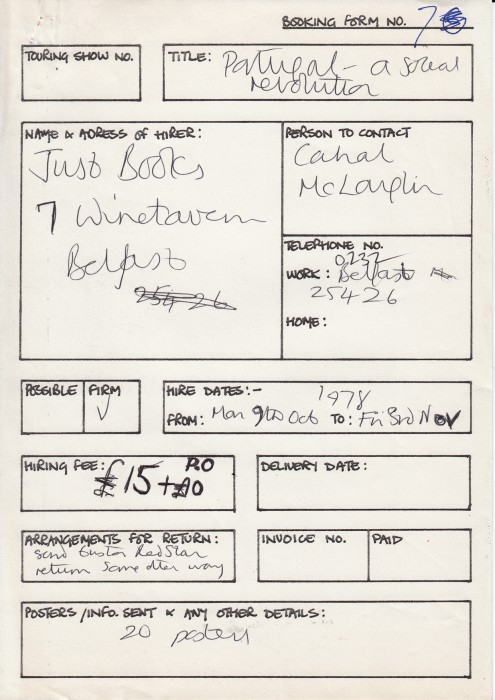 BOOKING FORM NO. 7
TOURING SHOW NO.
TITLE: Portugal - a social
revolution
NAME & ADRESS OF HIRER:
Just Books
7 Winetavern
Belfast
25426
PERSON TO CONTACT
Cahal
McLaughlin
TELEPHONE NO.
0232
WORK: Belfast
25426
HOME:
POSSIBLE
FIRM
✓
HIRE DATES:-
1978
FROM: Mon 9th Oct TO: Fri 3rd Nov
HIRING FEE: £15 +
DELIVERY DATE:
ARRANGEMENTS FOR RETURN:
send Euston Red Star
return some other way
INVOICE NO.
PAID
POSTERS/INFO. SENT & ANY OTHER DETAILS:
20 posters